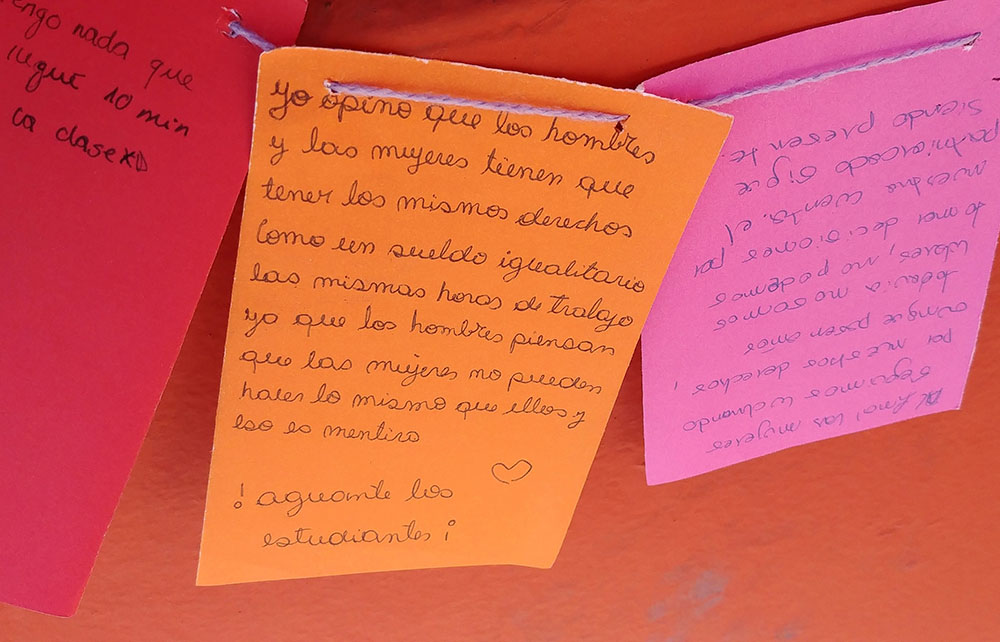 engo nada que
llegué 10 min
ca clase XD
yo opino que los hombres
y las mujeres tienen que
tener los mismos derechos
Como un sueldo igualitario
las mismas horas de trabajo
ya que los hombres piensan
que las mujeres no pueden
hacer lo mismo que ellos y
eso es mentira
! aguante los
estudiantes ¡
Al final las mujeres
seguimos luchando
por nuestros derechos,
aunque pasen años
todavia no somos
libres, no podemos
tomar decisiones por
nuestra cuenta. el
patriarcado sigue
siendo presente.